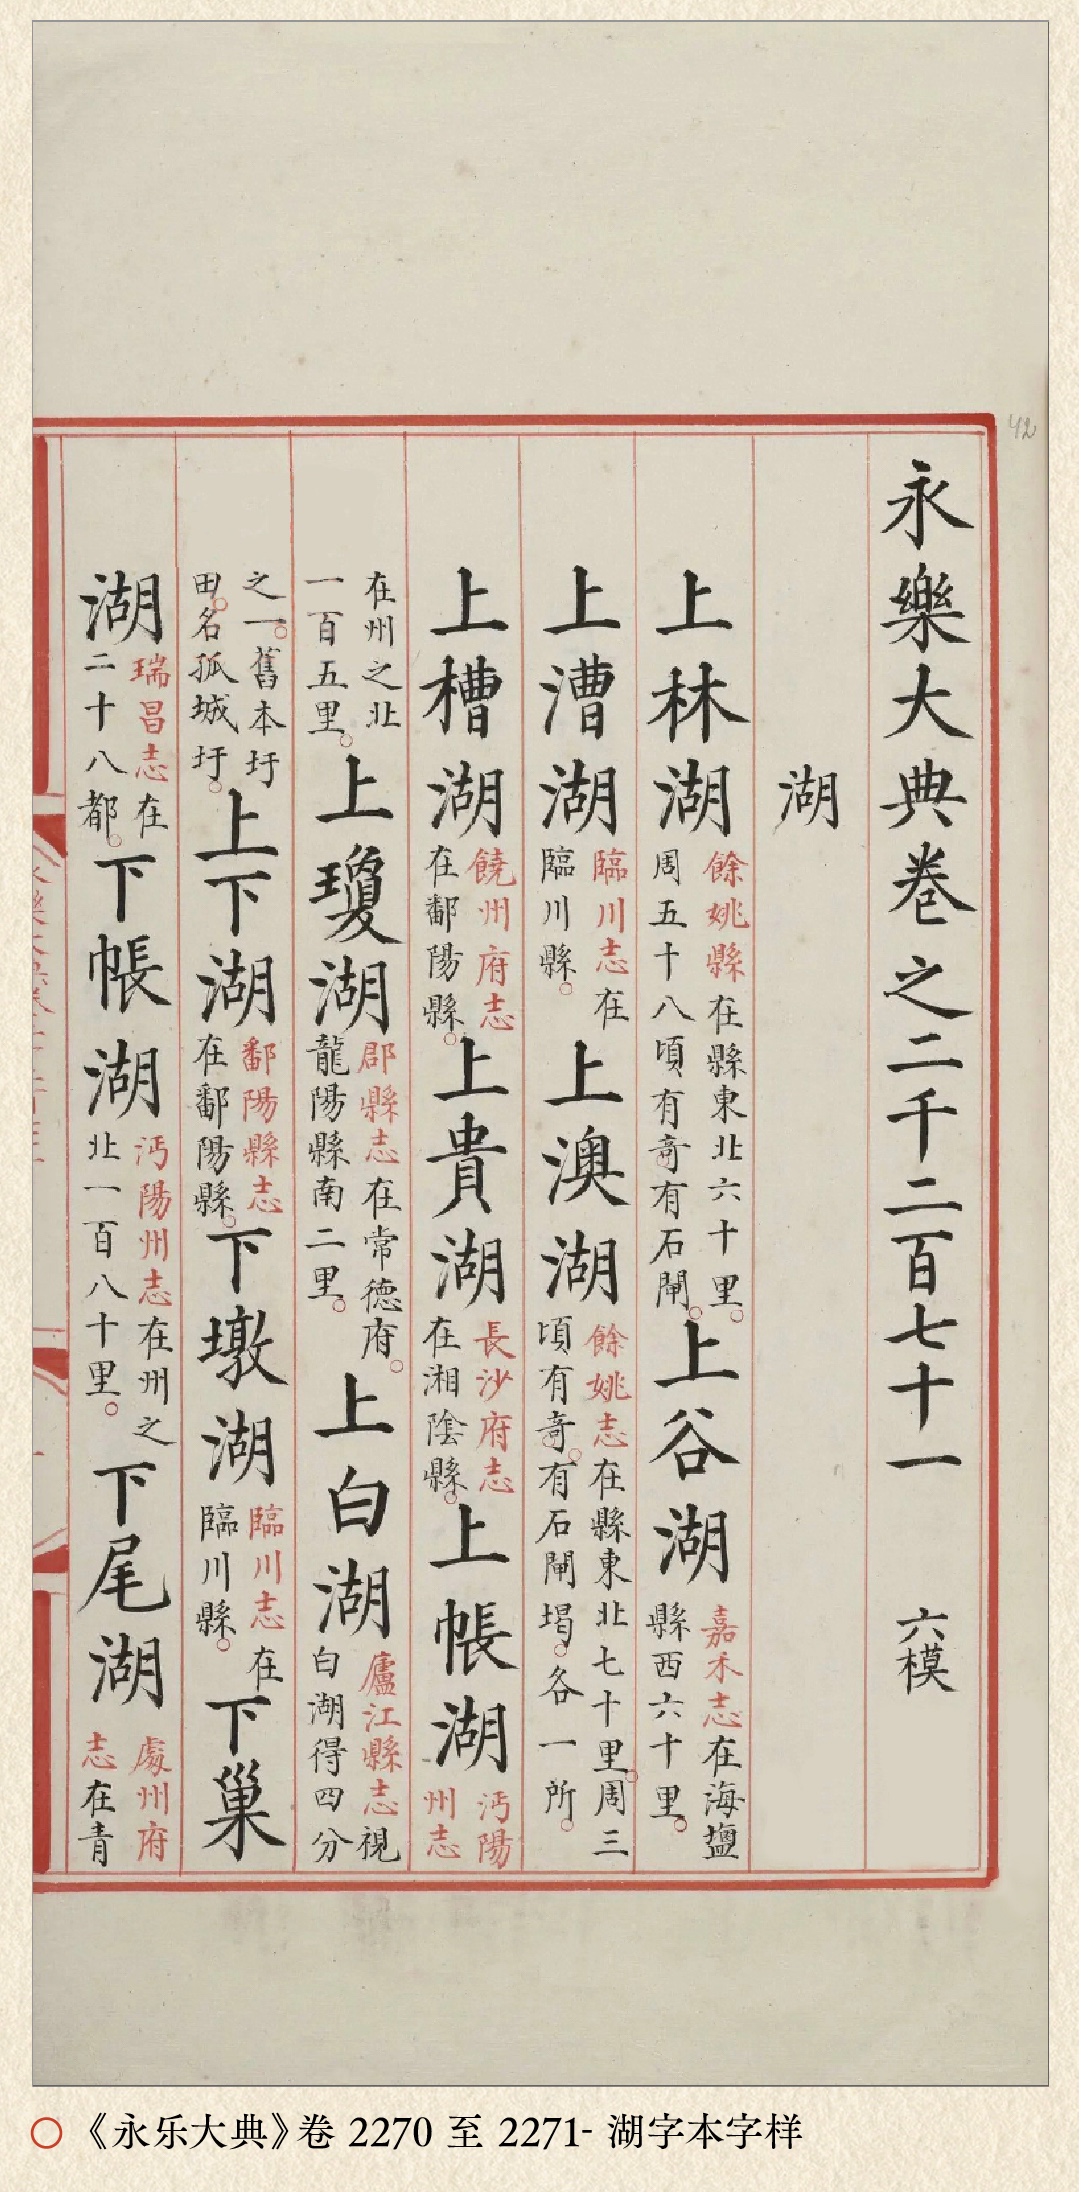 永樂大典卷之二千二百七十一 六模
湖
上林湖 餘姚縣在縣東北六十里。周五十八頃有奇有石閘。上谷湖 嘉禾志在海鹽縣西六十里。
上漕湖 臨川志在臨川縣。上澳湖 餘姚志在縣東北七十里。周三頃有奇。有石閘堨。各一所。
上槽湖 饒州府志在鄱陽縣。上貴湖 長沙府志在湘陰縣。上帳湖 沔陽州志
在州之北一百五里。上瓊湖 郡縣志在常德府。龍陽縣南二里。上白湖 廬江縣志視白湖得四分
之一。舊本圩田。名孤城圩。上下湖 鄱陽縣志在鄱陽縣。下墩湖 臨川志在臨川縣。下巢
湖 瑞昌志在二十八都。下帳湖 沔陽州志在州之北一百八十里。下尾湖 處州府志在青
42
《永乐大典》卷 2270 至 2271- 湖字本字样